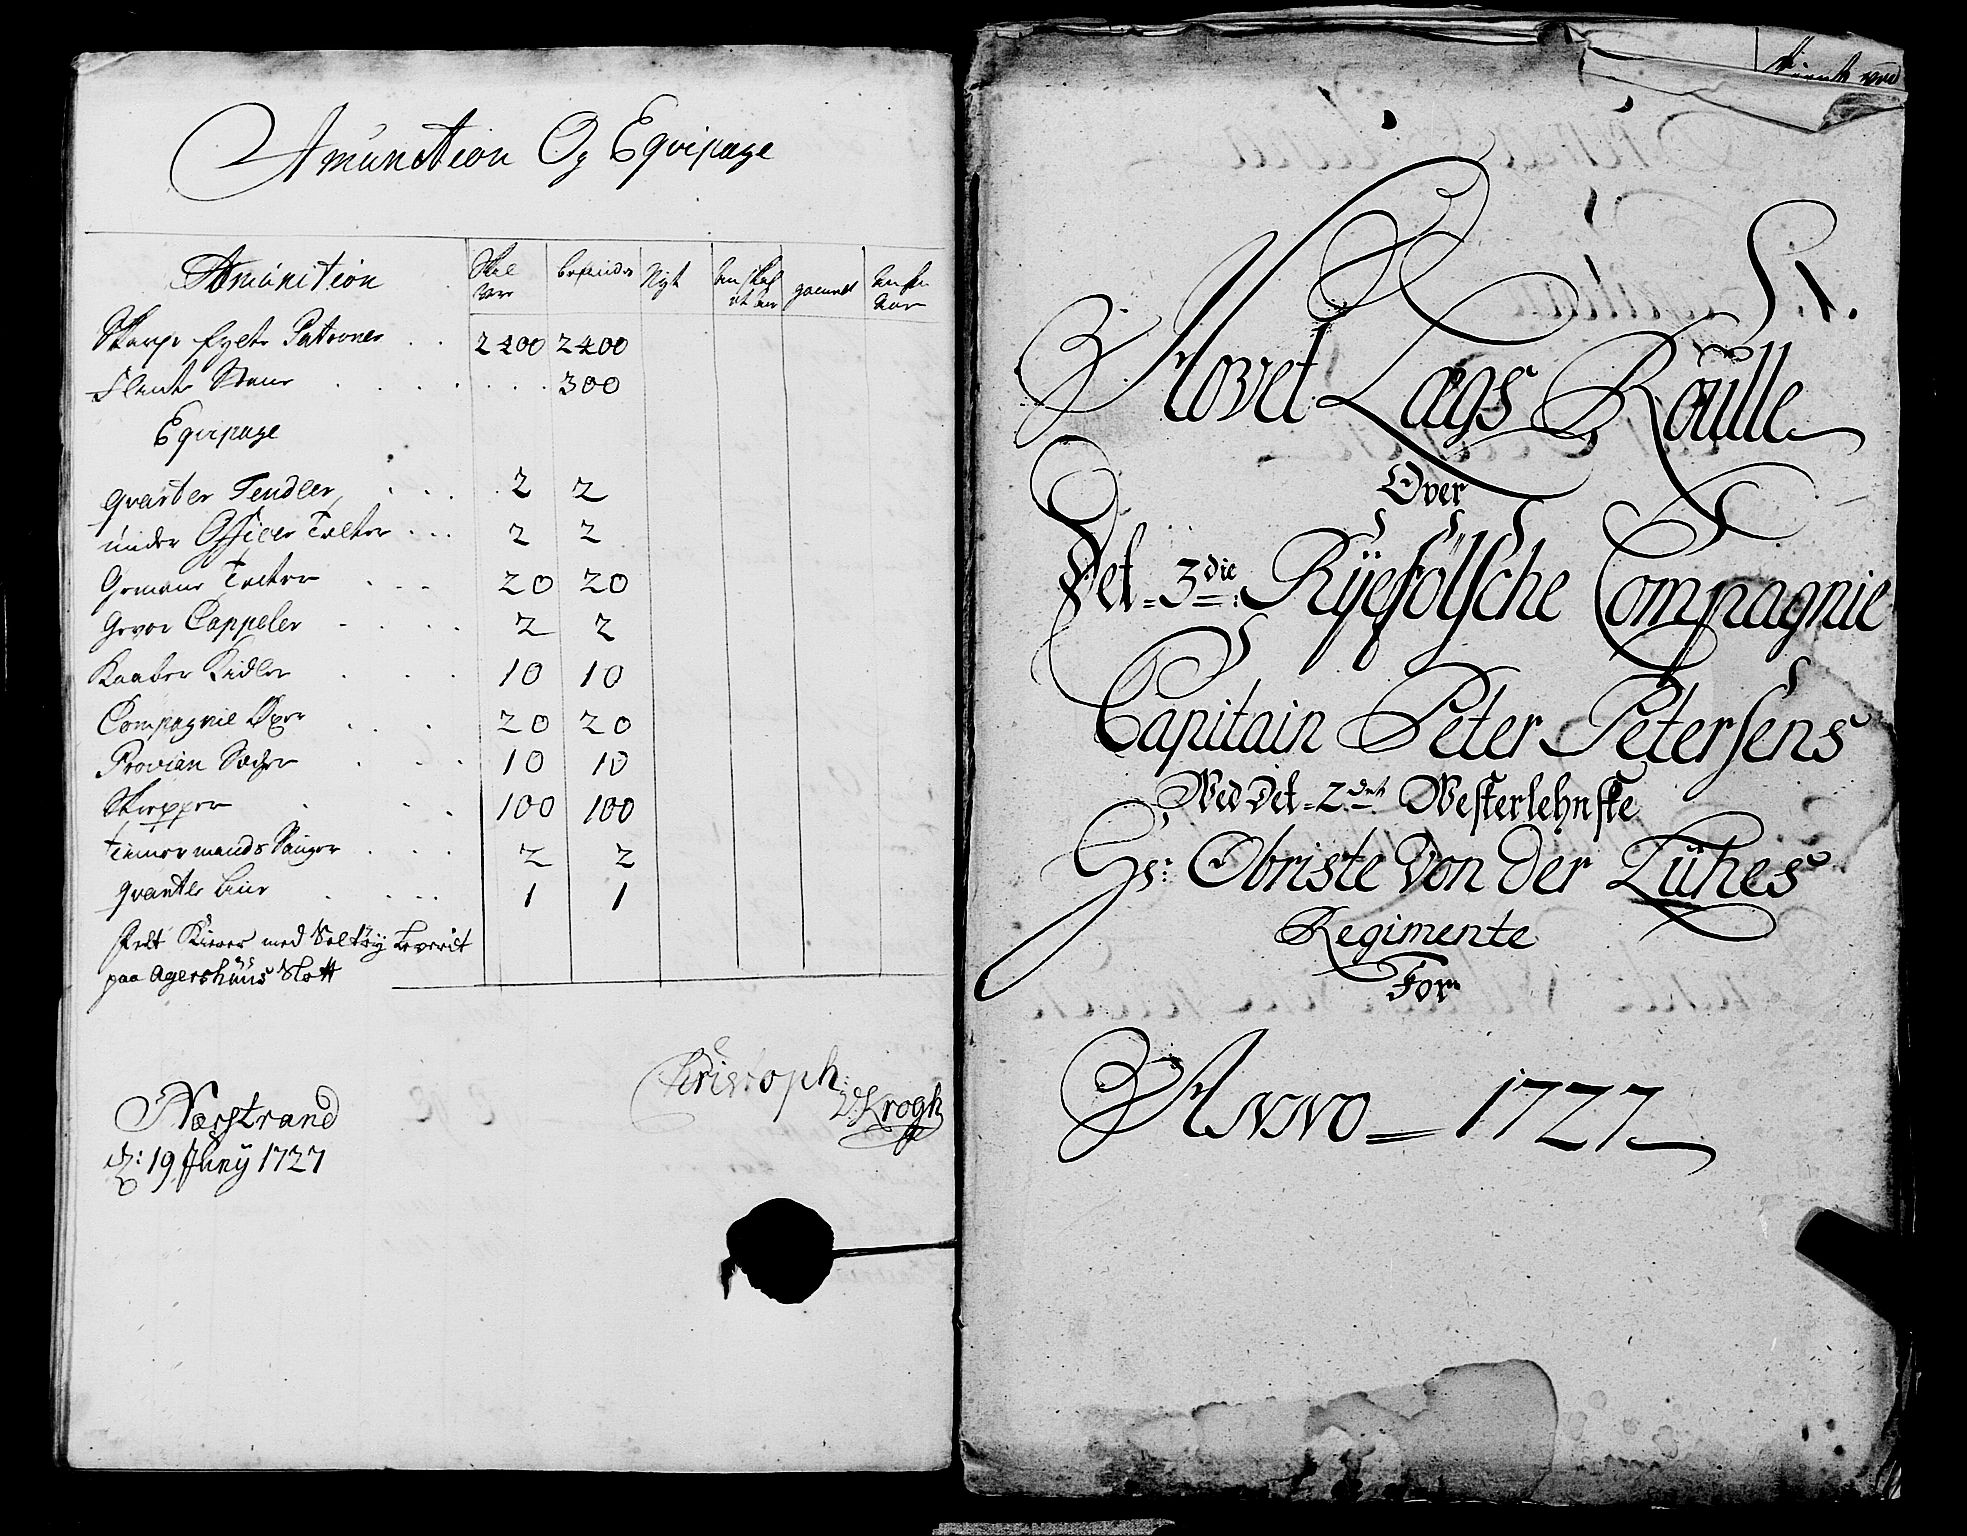 Amunition Og Equipage
Amunition Skal vere befindes Nyt
Skarpe fyelte Patroner 2400 2400
Flinte Steene 300
Equipage
Qvarteer Tendler 2 2
under Officer Telter 2 2
Gemene Telter 20 20
Gevær Cappeler 2 2
Kaaber Kidler 10 10
Compagnie Øxer 20 20
Provian Secher 10 10
Skrepper 100 100
Timmermands Sauger 2 2
1 1
feldt Kierer med Seltøy Leverit
paa Agershuus Slott
Christoph:
v. Krogh
Nerstrand
d: 19 Juny 1727
S. 1.
Hovet Lags Roulle
Over
Det 3die Ryefölsche Compagnie
Capitain Peter Petersens
Ved det 2det Westerlehnske
Hr: Obriste Von der Lühes
Regimente
For
Anno 1727